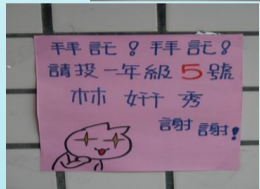 拜託！拜託！
請投一年級5號
林妍秀
謝謝！